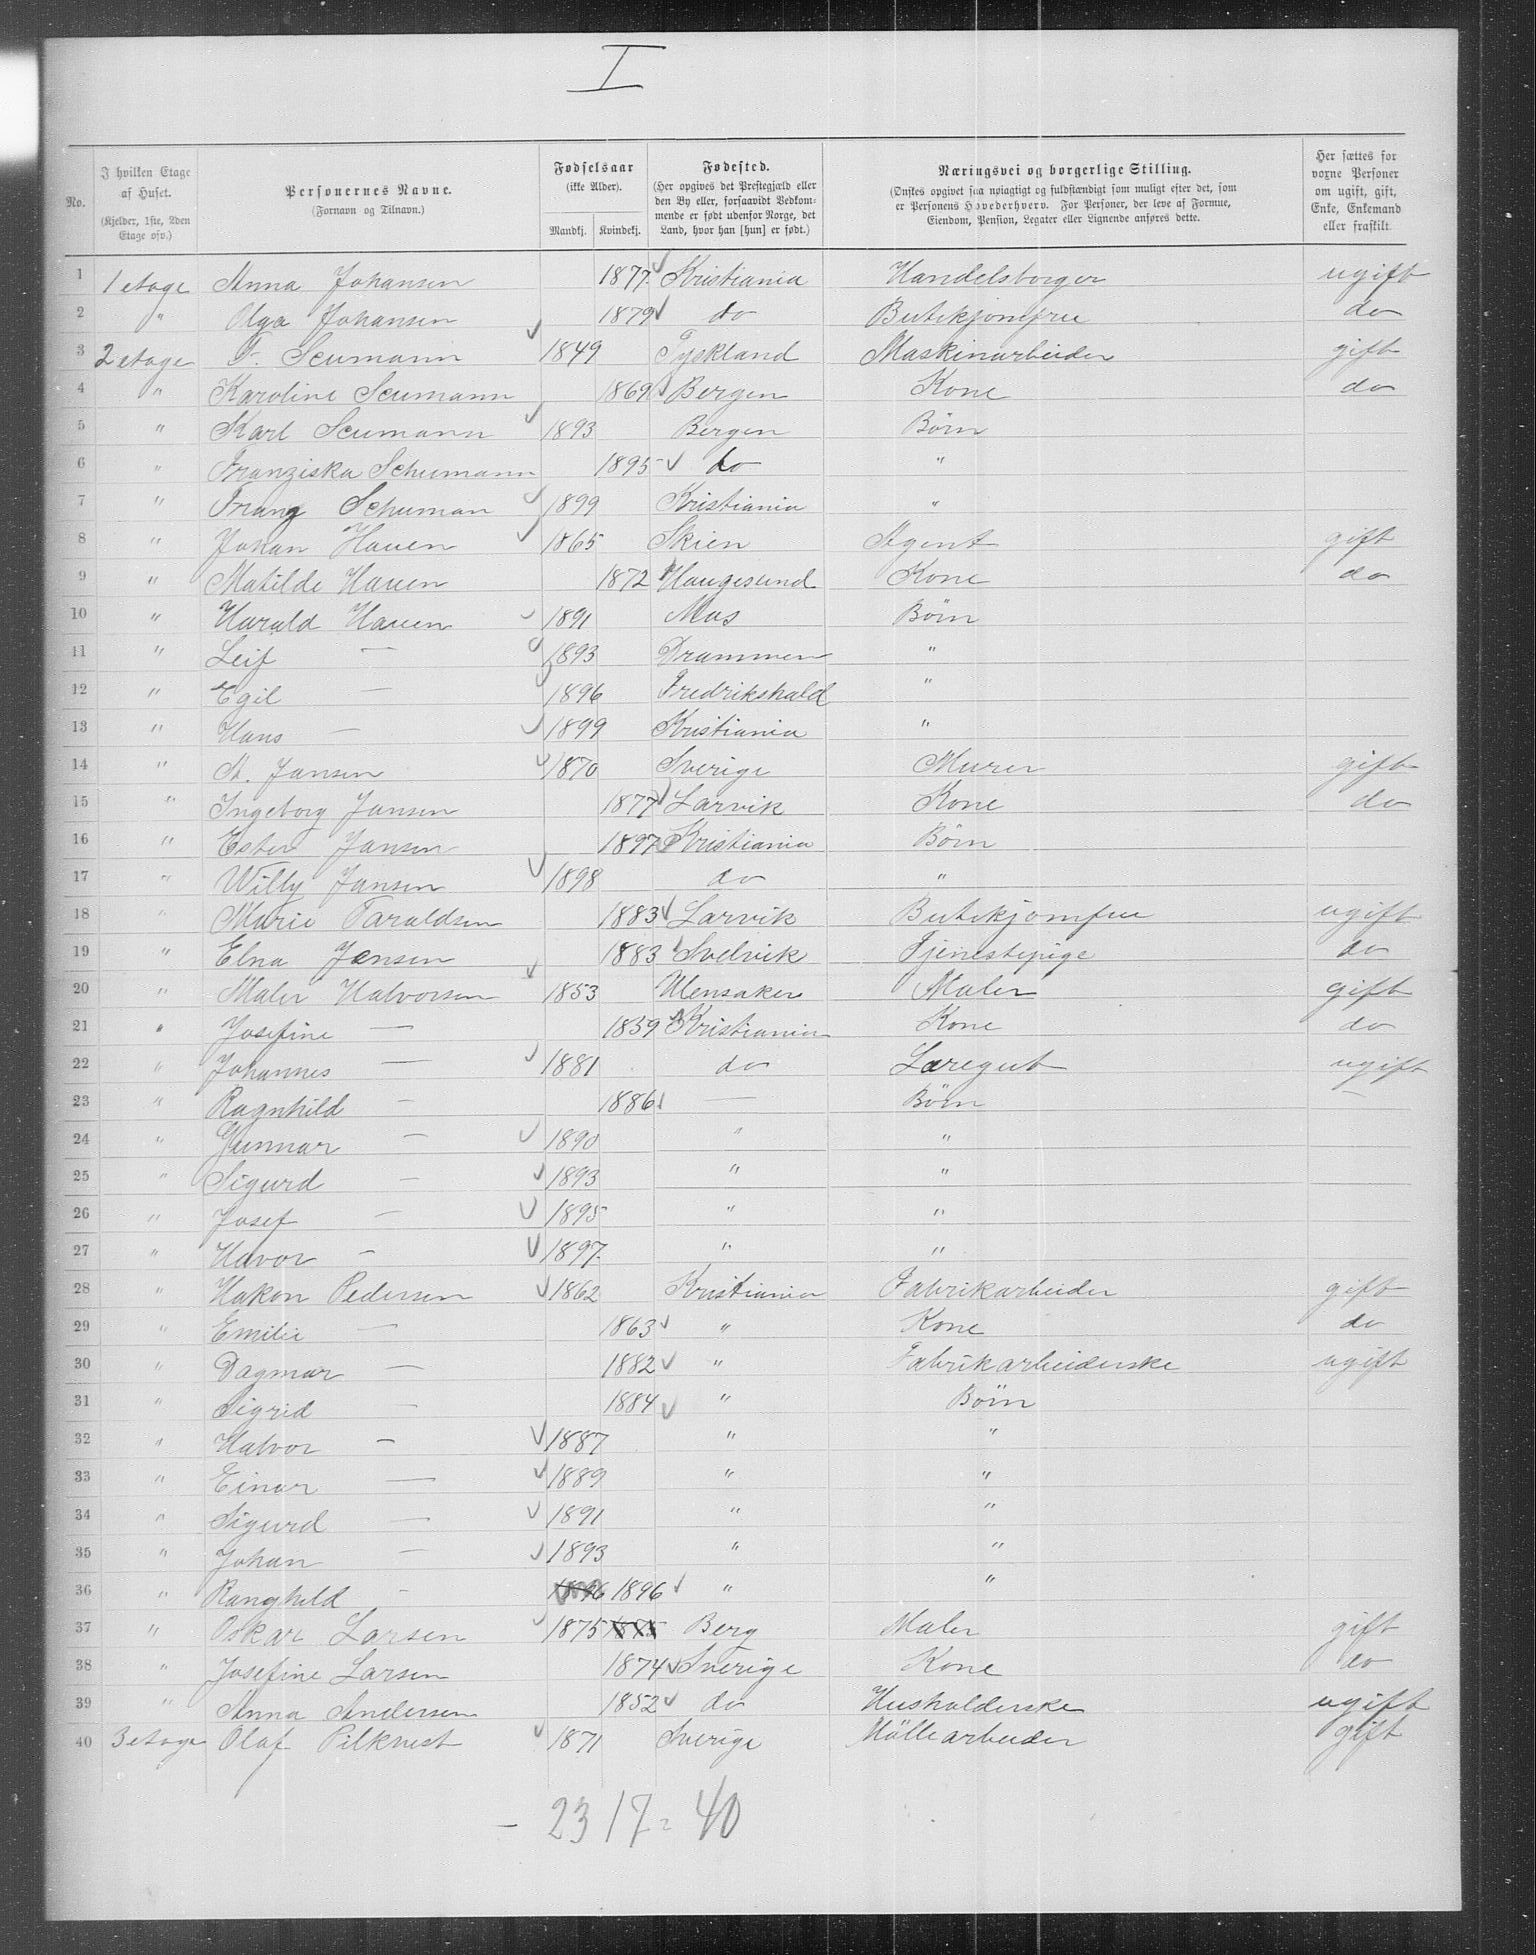 I
No.
I hvilken Etage af Huset.
(Kjelder, 1ste, 2den Etage osv.)
Personernes Navne.
(Fornavn og Tilnavn.)
Fødselsaar
(ikke Alder).
Mandkj. Kvindekj.
Fødested.
(Her opgives det Prestegjæld eller den By eller, forsaavidt Vedkommende er født udenfor Norge, det Land, hvor han [hun] er født.)
Næringsvei og borgerlige Stilling.
(Ønskes opgivet saa nøiagtigt og fuldstændigt som muligt efter det, som er Personens Hovederhverv. For Personer, der leve af Formue, Eiendom, Pension, Legater eller Lignende anføres dette.
Her sættes for voxne Personer om ugift, gift, Enke, Enkemand eller fraskilt.
1 1 etage Anna Johansen 1877 Kristiania Handelsborger ugift
2 " Olga Johansen 1879 do Butikjomfru do
3 2 etage F. Scumann 1849 Tyskland Maskinarbeider gift
4 " Karoline Scumann 1869 Bergen Kone do
5 " Karl Scumann 1893 Bergen Börn
6 " Franziska Schumann 1895 do "
7 " Franz Schuman 1899 Kristiania "
8 " Johan Hauen 1865 Skien Agent gift
9 " Matilde Hauen 1872 Haugesund Kone do
10 " Harald Hauen 1891 Mos Börn
11 " Leif — 1893 Drammen "
12 " Egil — 1896 Fredrikshald "
13 " Hans — 1899 Kristiania "
14 " A. Jansen 1870 Sverige Murer gift
15 " Ingeborg Jansen 1877 Larvik Kone do
16 " Ester Jansen 1897 Kristiania Börn
17 " Willy Jansen 1898 do "
18 " Marie Taraldsen 1883 Larvik Butikjomfru ugift
19 " Elna Jensen 1883 Svelvik Tjenestepige do
20 " Maler Halvorsen 1853 Ulensaker Maler gift
21 " Josefine — 1859 Kristiania Kone do
22 " Johannes — 1881 do Læregut ugift
23 " Ragnhild — 1886 — Börn
24 " Gunnar — 1890 " "
25 " Sigurd — 1893 " "
26 " Josef — 1895 " "
27 " Havor — 1897 " "
28 " Hakon Pedersen 1862 Kristiania Fabrikarbeider gift
29 " Emilie — 1863 " Kone do
30 " Dagmar — 1882 " Fabrikarbeiderske ugift
31 " Sigrid — 1884 " Börn
32 " Halvor — 1887 " "
33 " Einar — 1889 " "
34 " Sigurd — 1891 " "
35 " Johan — 1893 " "
36 " Ranghild — 1896 1896 " "
37 " Oskar Larsen 1875 1875 Berg Maler gift
38 " Josefine Larsen 1874 Sverige Kone do
39 " Anna Andersen 1852 do Husholderske ugift
40 3 etage Olaf Pilkvest 1871 Sverige Möllearbeider gift
– 23 17 = 40